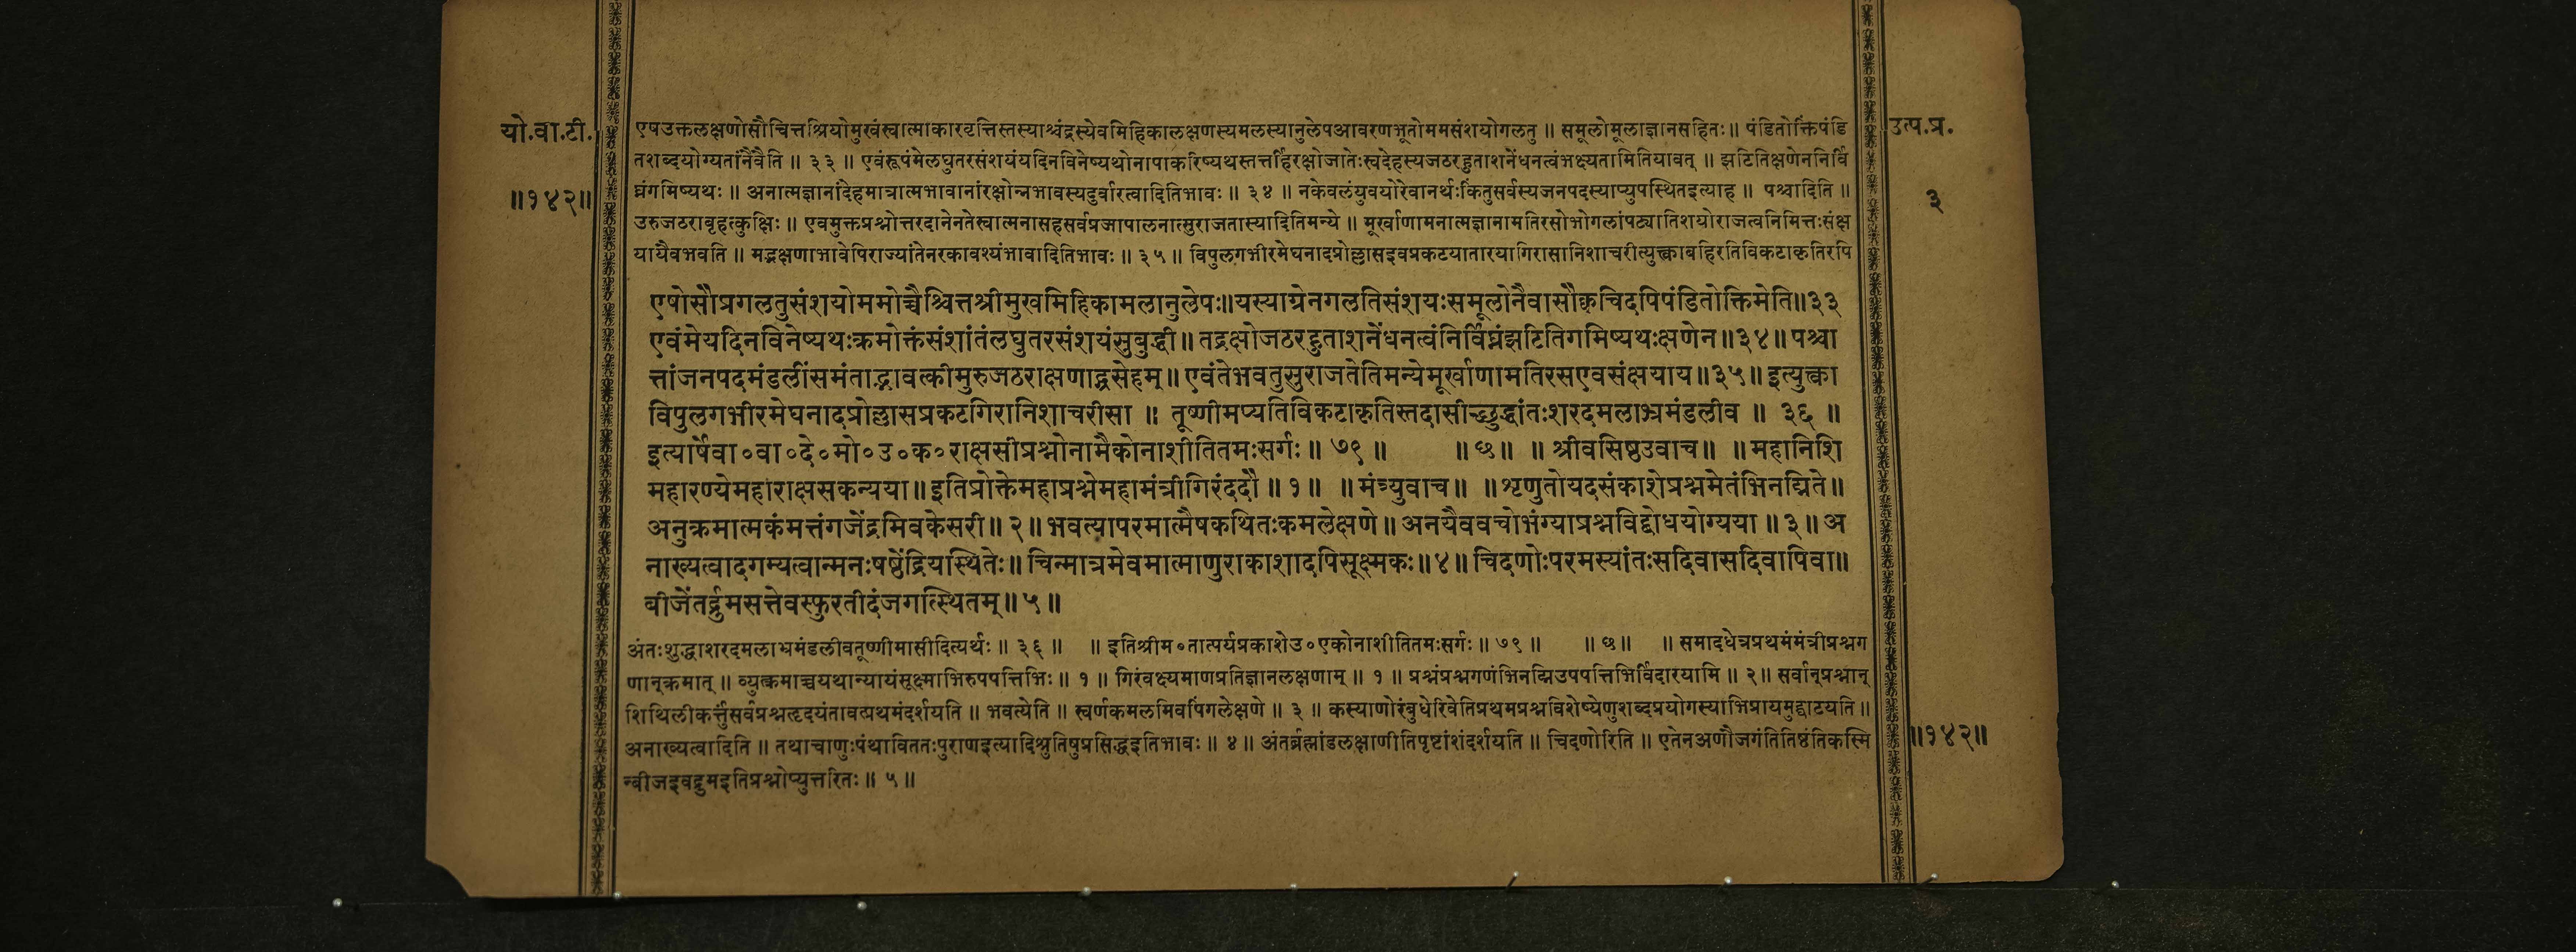 यो.वा.टी.
॥१४२॥
उत्प.प्र.
३
एषउक्तलक्षणोसौचित्तश्रियोमुखंस्वात्माकारवृत्तिस्तस्याश्चंद्रस्येवमिहिकालक्षणस्यमलस्यानुलेपआवरणभूतोममसंशयोगलतु ॥ समूलोमूलाज्ञानसहितः॥ पंडितोक्तिंपंडि
तशब्दयोग्यतांनैवैति ॥ ३३ ॥ एवंरूपंमेलघुतरसंशयंयदिनविनेष्यथोनापाकरिष्यथस्तत्तर्हिरक्षोजातेःस्वदेहस्यजठरहुताशनेंधनत्वंभक्ष्यतामितियावत् ॥ झटितिक्षणेननिर्वि
घ्नंगमिष्यथः ॥ अनात्मज्ञानांदेहमात्रात्मभावानांरक्षोन्नभावस्यदुर्वारत्वादितिभावः ॥ ३४ ॥ नकेवलंयुवयोरेवानर्थःकिंतुसर्वस्यजनपदस्याप्युपस्थितइत्याह ॥ पश्चादिति ॥
उरुजठराबृहत्कुक्षिः ॥ एवमुक्तप्रश्नोत्तरदानेनतेस्वात्मनासहसर्वप्रजापालनात्सुराजतास्यादितिमन्ये ॥ मूर्खाणामनात्मज्ञानामतिरसोभोगलांपट्यातिशयोराजत्वनिमित्तःसंक्ष
यायैवभवति ॥ मद्भक्षणाभावेपिराज्यांतेनरकावश्यंभावादितिभावः ॥ ३५ ॥ विपुलगभीरमेघनादप्रोल्लासइवप्रकटयातारयागिरासानिशाचरीत्युक्त्वाबहिरतिविकटाकृतिरपि
एषोसौप्रगलतुसंशयोममोच्चैश्चित्तश्रीमुखमिहिकामलानुलेपः॥यस्याग्रेनगलतिसंशयःसमूलोनैवासौक्वचिदपिपंडितोक्तिमेति॥३३
एवंमेयदिनविनेष्यथःक्रमोक्तंसंशांतंलघुतरसंशयंसुबुद्धी॥ तद्रक्षोजठरहुताशनेंधनत्वंनिर्विघ्नंझटितिगमिष्यथःक्षणेन॥३४॥ पश्चा
त्तांजनपदमंडलींसमंताद्भावत्कीमुरुजठराक्षणाद्ग्रसेहम्॥ एवंतेभवतुसुराजतेतिमन्येमूर्खाणामतिरसएवसंक्षयाय॥३५॥ इत्युक्त्वा
विपुलगभीरमेघनादप्रोल्लासप्रकटगिरानिशाचरीसा ॥ तूष्णीमप्यतिविकटाकृतिस्तदासीच्छुद्धांतःशरदमलाभ्रमंडलीव ॥ ३६ ॥
इत्यार्षेवा०वा०दे०मो०उ०क०राक्षसीप्रश्नोनामैकोनाशीतितमःसर्गः॥ ७९ ॥ ॥ छ॥ ॥ श्रीवसिष्ठउवाच॥ ॥ महानिशि
महारण्येमहाराक्षसकन्यया॥ इतिप्रोक्तेमहाप्रश्नेमहामंत्रीगिरंददौ॥ १॥ ॥ मंत्र्युवाच॥ ॥ शृणुतोयदसंकाशेप्रश्नमेतंभिनद्मिते॥
अनुक्रमात्मकंमत्तंगजेंद्रमिवकेसरी॥ २॥ भवत्यापरमात्मैषकथितःकमलेक्षणे॥ अनयैववचोभंग्याप्रश्नविद्बोधयोग्यया॥ ३॥ अ
नाख्यत्वादगम्यत्वान्मनःषष्ठेंद्रियस्थितेः॥ चिन्मात्रमेवमात्माणुराकाशादपिसूक्ष्मकः॥४॥ चिदणोःपरमस्यांतःसदिवासदिवापिवा॥
बीजेंतर्द्रुमसत्तेवस्फुरतीदंजगत्स्थितम्॥ ५॥
अंतःशुद्धाशरदमलाभ्रमंडलीवतूष्णीमासीदित्यर्थः ॥ ३६ ॥ ॥ इतिश्रीम०तात्पर्यप्रकाशेउ०एकोनाशीतितमःसर्गः॥ ७९॥ ॥ छ॥ ॥ समादधेत्रप्रथमंमंत्रीप्रश्नग
णान्क्रमात् ॥ व्युत्क्रमाच्चयथान्यायंसूक्ष्माभिरुपपत्तिभिः॥ १ ॥ गिरंवक्ष्यमाणप्रतिज्ञानलक्षणाम् ॥ १ ॥ प्रश्नंप्रश्नगणंभिनद्मिउपपत्तिभिर्विदारयामि ॥ २॥ सर्वान्प्रश्नान्
शिथिलीकर्त्तुंसर्वप्रश्नहृदयंतावत्प्रथमंदर्शयति ॥ भवत्येति ॥ स्वर्णकमलमिवपिंगलेक्षणे ॥ ३ ॥ कस्याणोरंबुधेरिवेतिप्रथमप्रश्नविशेष्येणुशब्दप्रयोगस्याभिप्रायमुद्घाटयति॥
अनाख्यत्वादिति ॥ तथाचाणुःपंथाविततःपुराणइत्यादिश्रुतिषुप्रसिद्धइतिभावः ॥ ४॥ अंतर्ब्रह्मांडलक्षाणीतिपृष्टांशंदर्शयति ॥ चिदणोरिति ॥ एतेनअणौजगंतितिष्ठंतिकस्मि
न्बीजइवद्रुमइतिप्रश्नोप्युत्तरितः॥ ५॥
॥१४२॥